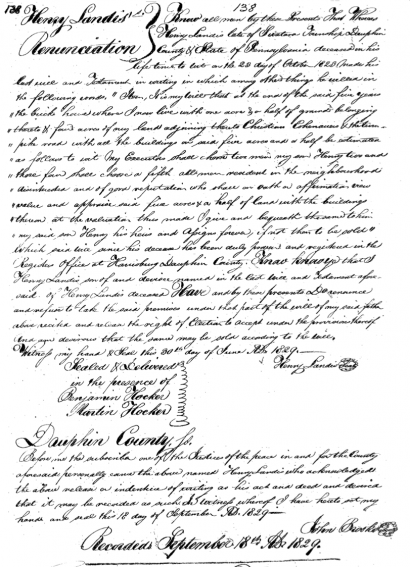 138 138
Henry Landis's
Renunciation
Know all men by these Presents That Whereas
Henry Landis late of Swatara Township Dauphin
County & State of Pennsylvania deceased in his
life time to wit on the 20 day of October 1820 made his
last will and Testament in writing in which among other things he willed in
the following words. "Item, It is my will that at the end of the said five years
"the brick house where I now live with one acre & half of ground belonging
thereto & four acres of my land adjoining thereto Christian & the turn-
pike road with all the buildings on said five acres and a half be estimated
as follow to wit My Executors shall choose two men my son Henry two and
these four shall choose a fifth all men resident in the neighbourhood
disinterested and of good reputation who shall on oath or affirmation view
value and appraise said five acres & a half of land with the buildings
thereon at the valuation thus made I give and bequeath the same to him
my said son Henry his heirs and assigns forever, if not then to be sold"
Which said will since his decease has been duly proven and registered in the
Registers Office at Harrisburg Dauphin County. Know Ye that I
Henry Landis son of and devisee named in the last will and Testament afore
said of Henry Landis deceased Have and by these presents Do renounce
and refuse to take the said premises under that part of the will of my said father
above recited and waive the right of Election to accept under the provision thereof
and am desirous that the same may be sold according to the will.
Witness my hand & Seal this 30th day of June AD. 1829.
Sealed & Delivered Henry Landis
in the presence of
Benjamin Hocker
Martin Hocker
Dauphin County, Ss.
Before me the subscriber one of the Justices of the peace in and for the County
aforesaid personally came the above named Henry Landis who acknowledged
the above release or indenture of writing as his act and deed and desired
that it may be recorded as such. In testimony whereof I have hereto set my
hand and seal this 18 day of September AD. 1829
John
Recorded September 18th AD. 1829.